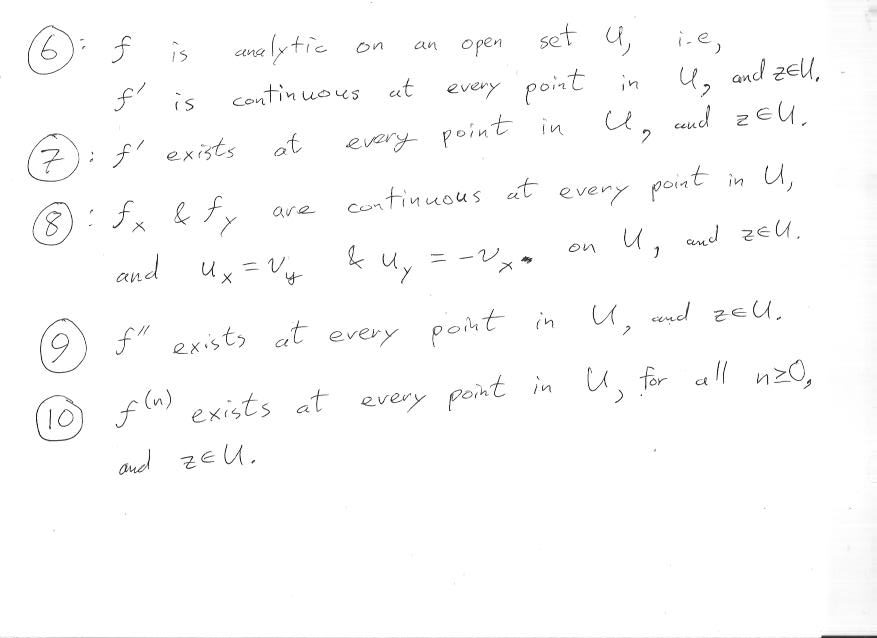 ⑥: f is analytic on an open set U, i.e,
f' is continuous at every point in U, and z∈U.
⑦: f' exists at every point in U, and z∈U.
⑧: fₓ & f_y are continuous at every point in U,
and uₓ = v_y & u_y = -vₓ on U, and z∈U.
⑨ f'' exists at every point in U, and z∈U.
⑩ f⁽ⁿ⁾ exists at every point in U, for all n≥0,
and z∈U.